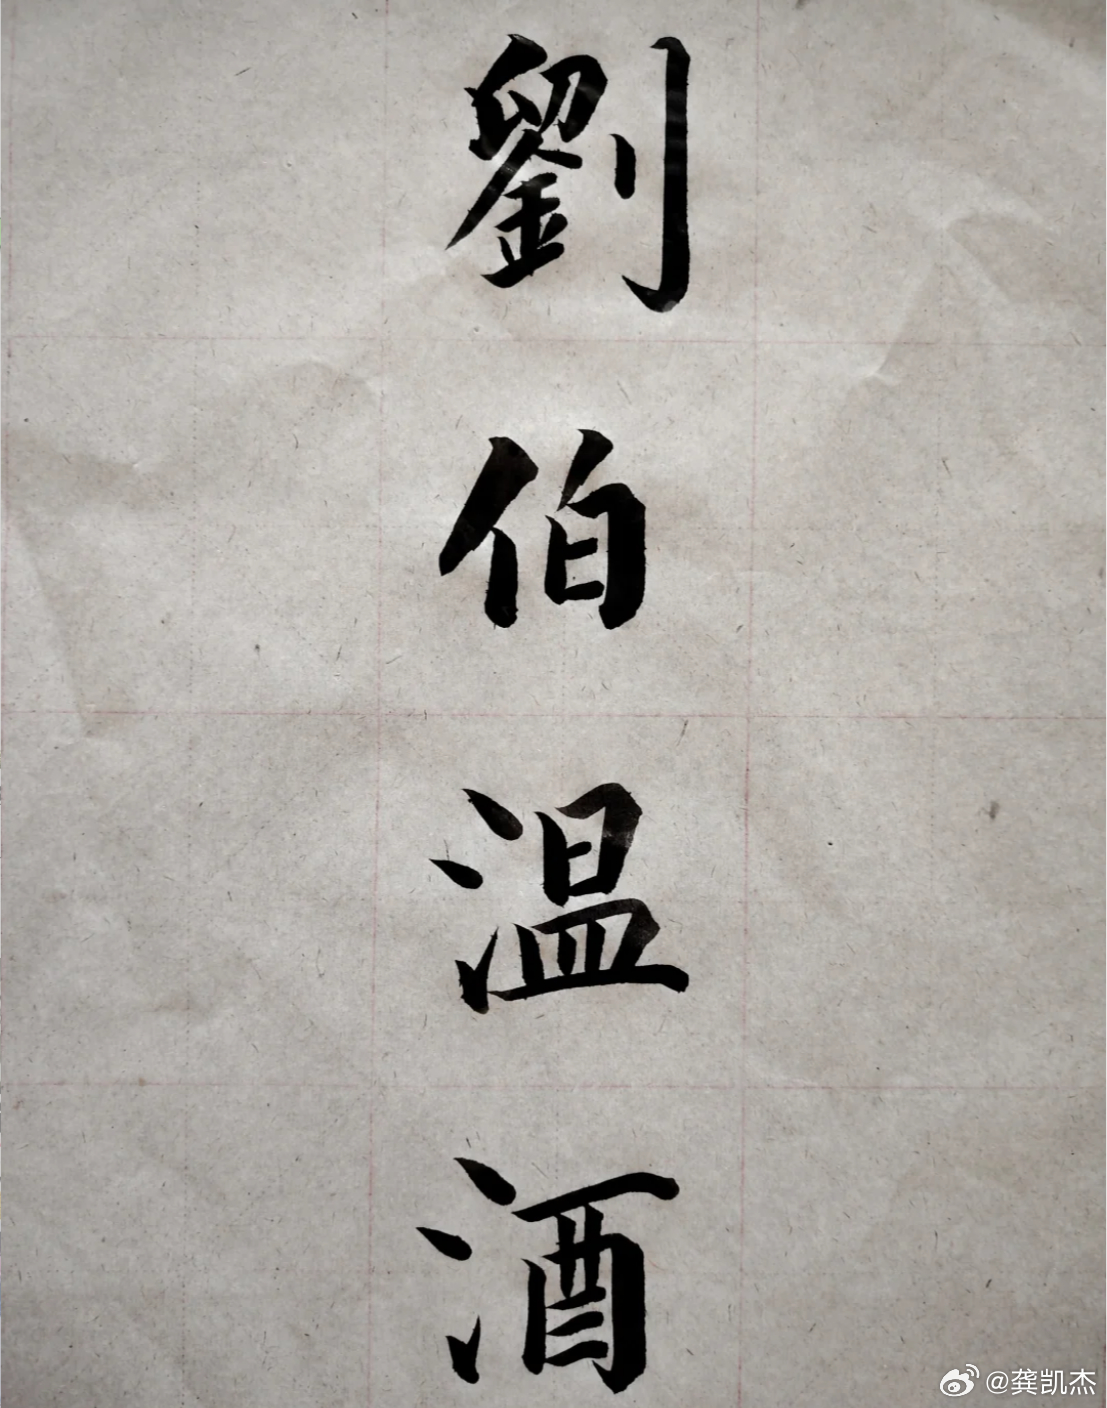 劉伯温酒
@龚凯杰